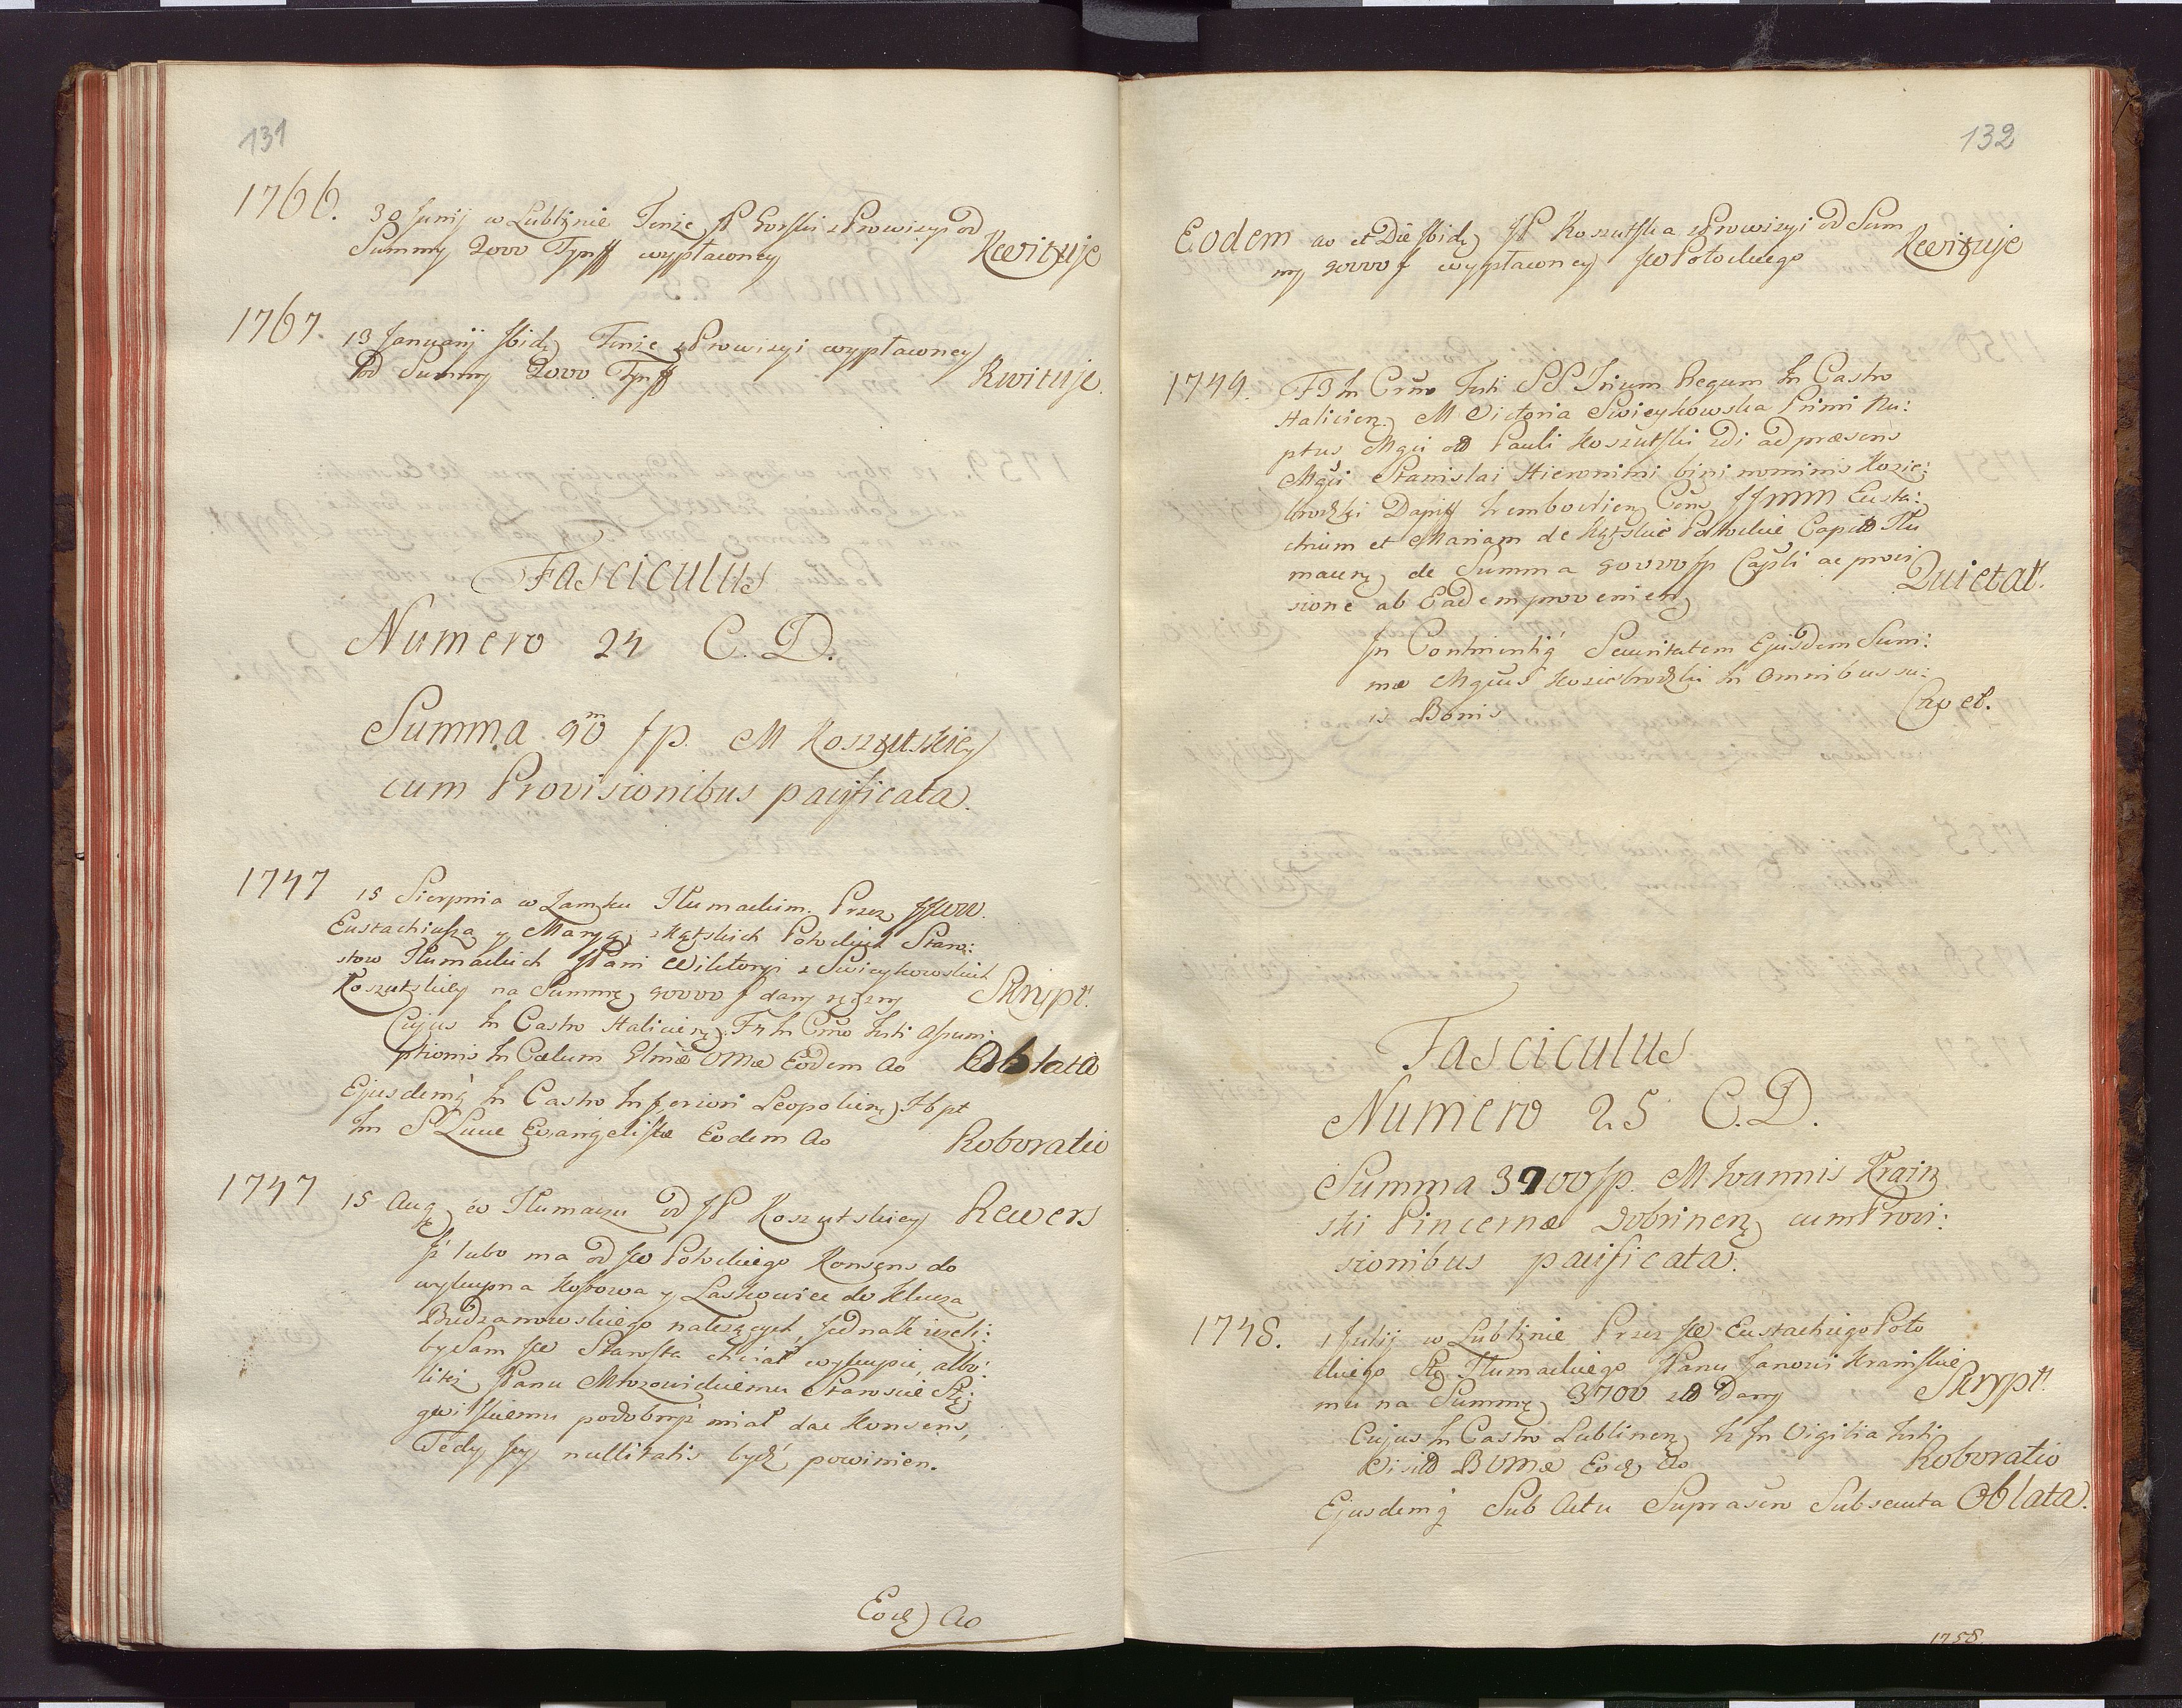 131
1766. 30 Junij w Lublinie Tenże JP Gorski z Prowizyi od
Summy 2000 Tynff wypłaconey Kwituje
1767. 13 Januarij Ibidę Tenże z Prowizyi wypłaconey
od Summy 2000 Tynff Kwituje.
Fasciculus
Numero 24 C. D.
Summa 90m fp. M Koszutskiey
cum Provisionibus pacificata.
1747 15 Sierpnia w Zamku Tłumackim. Przez JJWW.
Eustachiusza y Maryą z Kątskich Potockich Staro:
stow Tłumackich JPani Wiktoryi z Swieykowskich
Koszutskiey na Summę 90000 f dany ręczny Skrypt.
Cujus In Castro Haliciens F4 In Cmo Fsti Assum:
ptionis In Cœlum Eodem Ao Oblata
Ejusdemq In Castro Inferiori Leopoliens Fb pt
Fm S Lucæ Evangelistæ Eodem Ao Roboratio
1747 15 Aug w Tłumaczu od JP Koszutskiey Rewers
Jż lubo ma od JW Potockiego Konsens do
wykupna Kossowa y Laskowiec do Klucza
Budzanowskiego należących, Jednak jeżeli:
by Sam JW Starosta chciał wykupić, albo
litéż Panu Mrozowickiemu Staroscie Stę:
gwilskiemu podobnyż miał dac Konsens,
Tedy Jey nullitatis bydź powinien.
Eodę Ao
132
Eodem ao et Die Ibidę JP Koszutska z Prowizyi od Sum
my 90000 f wypłaconey JW Potockiego Kwituje
1749. F3 In Crno Fsti SS Trium Regum In Castro
Haliciens M Victoria Swieykowska Primi Nu:
ptus Mgci olim Pauli Koszutski 2di ad præsens
Mgci Stanislai Hieronimi bini nominis Kozie:
brodzki Dapiff Trembovliens Cons JJMM Eusta:
chium et Mariam de Kątskie Potockie Capit Tłu
macens de Summa 90000 fp Caplli ac provi
sione ab Eadem provenien Quietat.
In Continentiq Securitatem Ejusdem Sum:
mæ Mgcus Koziebrodzki In Omnibus su:
is Bonis Cavet.
Fasciculus
Numero 25 C. D.
Summa 3700 fp. M. Ioannis Krain
ski Pincernæ Dobrinens cum Provi:
sionibus pacificata.
1748. 1 Julij w Lublinie Przez JW Eustachiego Poto
ckiego Stę Tłumackiego JPanu Janowi Krainskie
mu na Summę 3700 zł Dany Skrypt.
Cujus In Castro Lublinens In Vigilia Fsti
Visit BVMæ Eodę Ao Roboratio
Ejusdemq Sub Actu Suprascro Subsecuta Oblata.
1758